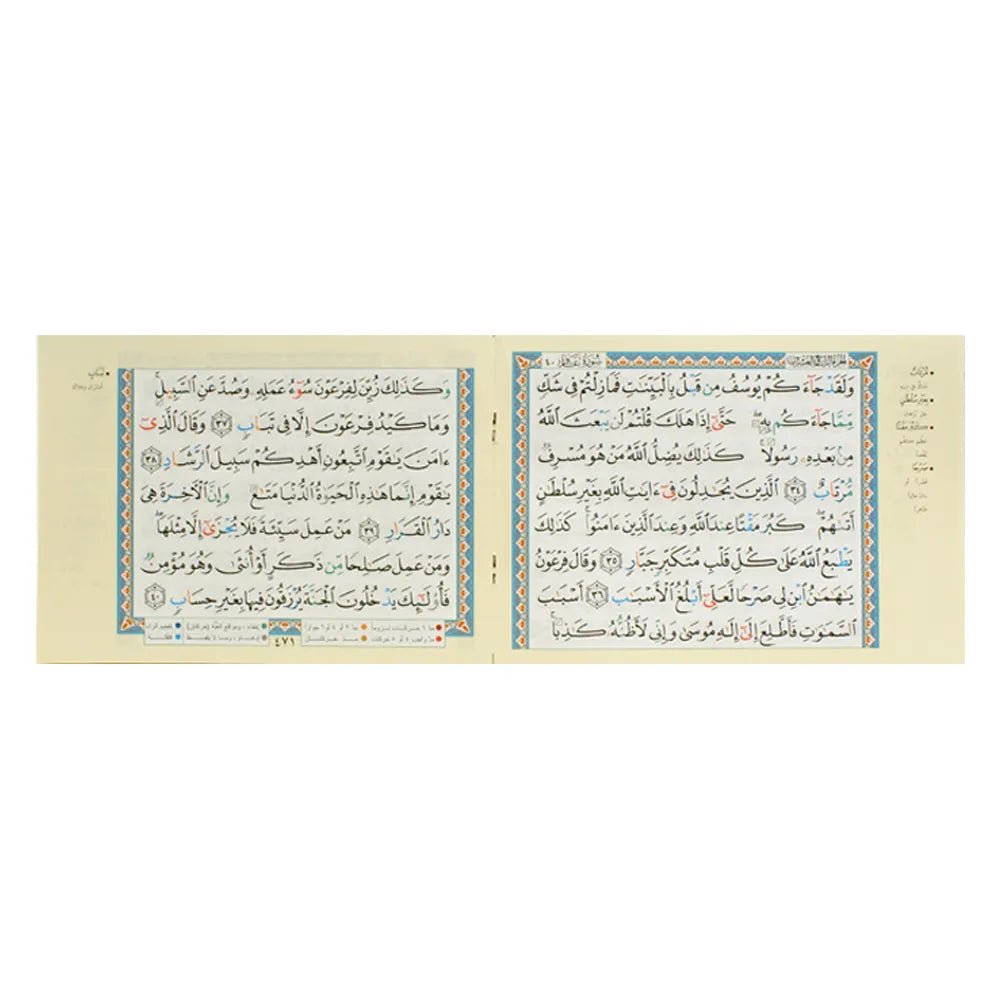 سورة غافر ٤٠
وَلَقَدْ جَآءَكُمْ يُوسُفُ مِن قَبْلُ بِٱلْبَيِّنَٰتِ فَمَا زِلْتُمْ فِى شَكٍّ
مِّمَّا جَآءَكُم بِهِۦ ۖ حَتَّىٰٓ إِذَا هَلَكَ قُلْتُمْ لَن يَبْعَثَ ٱللَّهُ
مِنۢ بَعْدِهِۦ رَسُولًا ۚ كَذَٰلِكَ يُضِلُّ ٱللَّهُ مَنْ هُوَ مُسْرِفٌ
مُّرْتَابٌ ٣٤ ٱلَّذِينَ يُجَٰدِلُونَ فِىٓ ءَايَٰتِ ٱللَّهِ بِغَيْرِ سُلْطَٰنٍ
أَتَىٰهُمْ ۖ كَبُرَ مَقْتًا عِندَ ٱللَّهِ وَعِندَ ٱلَّذِينَ ءَامَنُوا۟ ۚ كَذَٰلِكَ
يَطْبَعُ ٱللَّهُ عَلَىٰ كُلِّ قَلْبِ مُتَكَبِّرٍ جَبَّارٍ ٣٥ وَقَالَ فِرْعَوْنُ
يَٰهَٰمَٰنُ ٱبْنِ لِى صَرْحًا لَّعَلِّىٓ أَبْلُغُ ٱلْأَسْبَٰبَ ٣٦ أَسْبَٰبَ
ٱلسَّمَٰوَٰتِ فَأَطَّلِعَ إِلَىٰٓ إِلَٰهِ مُوسَىٰ وَإِنِّى لَأَظُنُّهُۥ كَٰذِبًا ۚ
مُرْتَابٌ
بِغَيْرِ سُلْطَٰنٍ
كَبُرَ مَقْتًا
صَرْحًا
وَكَذَٰلِكَ زُيِّنَ لِفِرْعَوْنَ سُوٓءُ عَمَلِهِۦ وَصُدَّ عَنِ ٱلسَّبِيلِ ۚ
وَمَا كَيْدُ فِرْعَوْنَ إِلَّا فِى تَبَابٍ ٣٧ وَقَالَ ٱلَّذِىٓ
ءَامَنَ يَٰقَوْمِ ٱتَّبِعُونِ أَهْدِكُمْ سَبِيلَ ٱلرَّشَادِ ٣٨
يَٰقَوْمِ إِنَّمَا هَٰذِهِ ٱلْحَيَوٰةُ ٱلدُّنْيَا مَتَٰعٌ وَإِنَّ ٱلْءَاخِرَةَ هِىَ
دَارُ ٱلْقَرَارِ ٣٩ مَنْ عَمِلَ سَيِّئَةً فَلَا يُجْزَىٰٓ إِلَّا مِثْلَهَا ۖ
وَمَنْ عَمِلَ صَٰلِحًا مِّن ذَكَرٍ أَوْ أُنثَىٰ وَهُوَ مُؤْمِنٌ
فَأُو۟لَٰٓئِكَ يَدْخُلُونَ ٱلْجَنَّةَ يُرْزَقُونَ فِيهَا بِغَيْرِ حِسَابٍ ٤٠
تَبَابٍ
٤٧١